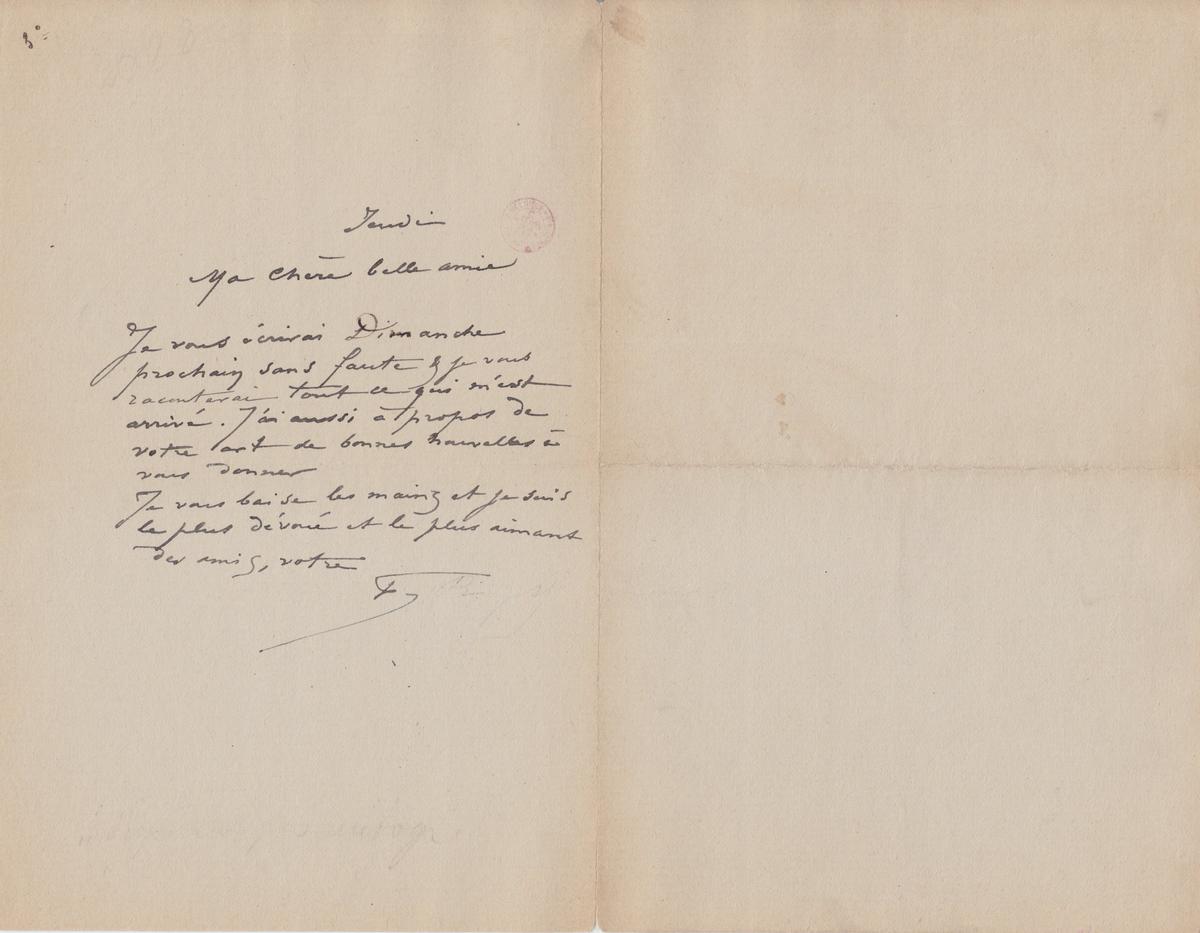 Jeudi
Ma chère belle amie
Je vous écrirai Dimanche
prochain sans faute & je vous
raconterai tout ce qui m'est
arrivé. J'ai aussi à propos de
votre art de bonnes nouvelles à
vous donner
Je vous baise les mains et je suis
le plus dévoué et le plus aimant
des amis, votre
F